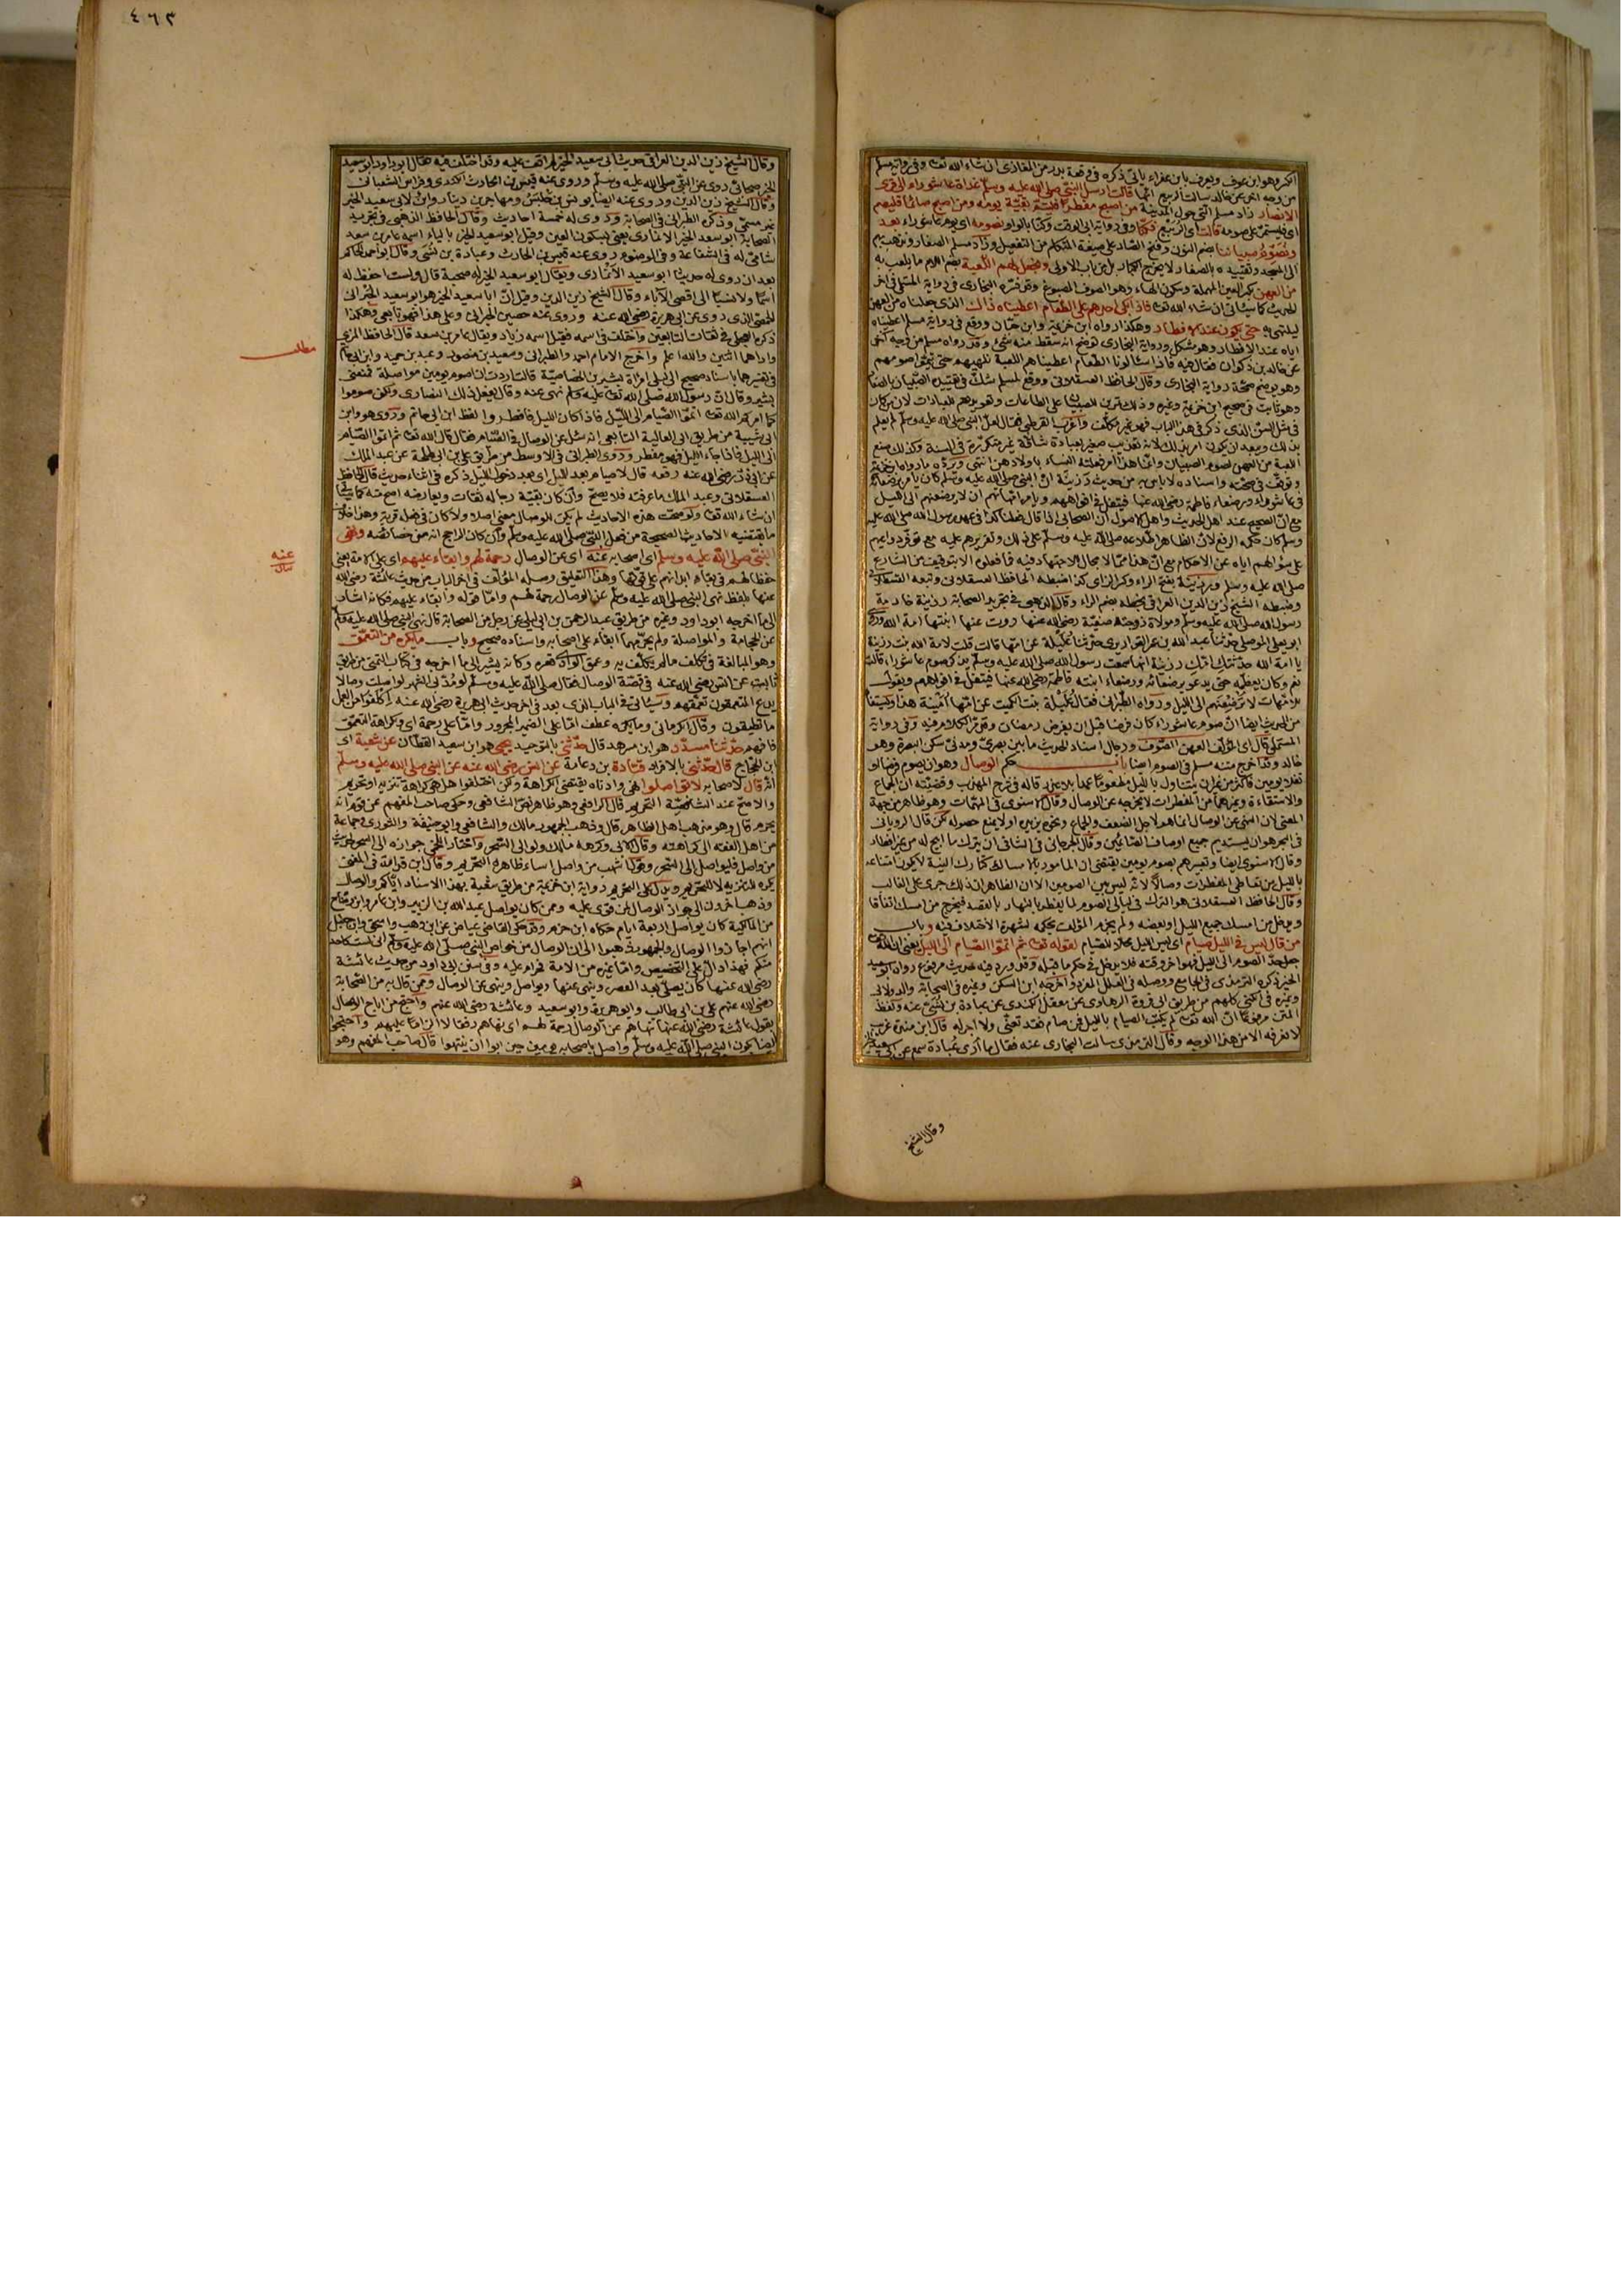 اكبر وهو ابن عوف ويعرف بابن عفراء يأتي ذكره في وقعة بدر من المغازي ان شاء الله تعا وفي رواية مسلم
من وجه آخر عن خالد سألت الربيع انها قالت ارسل النبي صلى الله عليه وسلم غداة عاشوراء الى قرى
الانصار زاد مسلم التي حول المدينة من اصبح مفطرا فليتم بقية يومه ومن اصبح صائما فليصم
اي فليستمر على صومه قالت اي الربيع فكنا وفي رواية ابي الوقت وكنا بالواو نصومه اي يوم عاشوراء بعد
ونصوم صبياننا بضم النون وفتح الصاد على صيغة المتكلم من التفعيل وزاد مسلم الصغار ونذهب بهم
الى المسجد وتقييده بالصغار لا يخرج الكبار بل من باب الاولى ونجعل لهم اللعبة بضم اللام ما يلعب به
من العهن بكسر العين المهملة وسكون الهاء وهو الصوف المصبوغ وقد فسره البخاري في رواية المستملي في آخر
الحديث كما سيأتي ان شاء الله تعا فاذا بكى احدهم على الطعام اعطيناه ذاك الذي جعلناه من العهن
ليلتهي به حتى يكون عند الافطار وهكذا رواه ابن خزيمة وابن حبان ووقع في رواية مسلم اعطيناه
اياه عند الافطار وهو مشكل ورواية البخاري توضح انه سقط منه شيء وقد رواه مسلم من وجه آخر
عن خالد بن ذكوان فقال فيه فاذا سألونا الطعام اعطيناهم اللعبة تلهيهم حتى يتموا صومهم
وهو يوضح صحة رواية البخاري وقال الحافظ العسقلاني ووقع لمسلم شك في تقييد الصبيان بالصغار
وهو ثابت في صحيح ابن خزيمة وغيره وذلك تمرين للصبيان على الطاعات وتعويدهم للعبادات لان من كان
في مثل السن الذي ذكر في هذا الباب فهو غير مكلف واغرب القرطبي فقال لعل النبي صلى الله عليه وسلم لم يعلم
بذلك ويبعد ان يكون امر بذلك لانه تعذيب صغير بعبادة شاقة غير متكررة في السنة
مع ان الصحيح عند اهل الحديث واهل الاصول ان الصحابي اذا قال فعلنا كذا في عهد رسول الله صلى الله عليه
وسلم كان حكمه الرفع لان الظاهر اطلاعه صلى الله عليه وسلم على ذلك وتقريرهم عليه مع توفر دواعيهم
على سؤالهم اياه عن الاحكام مع ان هذا مما لا مجال للاجتهاد فيه فما فعلوه الا بتوقيف من الشارع
صلى الله عليه وسلم ورزينة بفتح الراء وكسر الزاي كذا ضبطه الحافظ العسقلاني وتبعه القسطلاني
وضبطه الشيخ زين الدين العراقي بخطه بضم الراء وقال الذهبي في تجريد الصحابة رزينة خادمة
رسول الله صلى الله عليه وسلم ومولاة زوجته صفية رضي الله عنها روت عنها ابنتها امة الله وروى
من الحديث ايضا ان صوم عاشوراء كان فرضا قبل ان يفرض رمضان
المستملي قال اي المؤلف العهن الصوف ورجال اسناد الحديث ما بين بصري ومدني سكن البصرة وهو
خالد وقد اخرج متنه مسلم في الصوم ايضا باب حكم الوصال وهو ان يصوم فرضا او
نفلا يومين فاكثر من غير ان يتناول بالليل مطعوما عمدا بلا عذر قاله في شرح المهذب وقضيته ان الجماع
والاستقاءة وغيرهما من المفطرات لا يخرجه عن الوصال وقال الاسنوي في المهمات وهو ظاهر من جهة
المعنى لان النهي عن الوصال انما هو لاجل الضعف والجماع ونحوه يزيده او لا يمنع حصوله لكن قال الروياني
في البحر هو ان يستديم جميع اوصاف الصائمين وقال الجرجاني في الشافي ان يترك ما ابيح له من غير افطار
وقال الاسنوي ايضا وتعبيرهم بصوم يومين يقتضي ان المأمور بالامساك كتارك النية لا يكون امتناعه
بالليل من تعاطي المفطرات وصالا لانه ليس بين الصومين الا ان الظاهر ان ذلك جرى على الغالب
وقال الحافظ العسقلاني هو الترك في ليالي الصوم لما يفطر بالنهار بالقصد فيخرج من امسك اتفاقا
ويدخل من امسك جميع الليل او بعضه ولم يجزم المؤلف بحكمه لشهرة الاختلاف فيه وباب
من قال ليس في الليل صيام اي ليس الليل محلا للصيام لقوله تعا ثم اتموا الصيام الى الليل يعني ان الله
جعل حد الصوم الى الليل فهو آخر وقته فلا يدخل في حكم ما قبله وقد ورد فيه حديث مرفوع رواه ابو سعيد
الخير ذكره الترمذي في الجامع ووصله في العلل المفرد واخرجه ابن السكن وغيره في الصحابة والدولابي
وغيره في الكنى كلهم من طريق ابي فروة الرهاوي عن معقل الكندي عن عبادة بن نسي عنه ولفظ
المتن مرفوعا ان الله تعا لم يكتب الصيام بالليل فمن صام فقد تعنى ولا اجر له قال ابن منده غريب
لا نعرفه الا من هذا الوجه وقال الترمذي سألت البخاري عنه فقال ما ارى عبادة سمع من ابي سعيد الخير
وقال الشيخ
٤٦٣
وقال الشيخ زين الدين العراقي حديث ابي سعيد الخير لم اقف عليه وقد اختلف فيه فقال ابو داود ابو سعيد
الخير صحابي روى عن النبي صلى الله عليه وسلم وروى عنه قيس بن الحارث الكندي وفراس الشعباني
وقال الشيخ زين الدين وروى عنه ايضا يونس بن حلبس ومهاجر بن دينار وابن لابي سعيد الخير
غير مسمى وذكره الطبراني في الصحابة وروى له خمسة احاديث وقال الحافظ الذهبي في تجريد
الصحابة ابو سعد الخير الانماري يعني بسكون العين وقيل ابو سعيد الخير بالياء اسمه عامر بن سعد
شامي له في الشفاعة وفي الوضوء روى عنه قيس بن الحارث وعبادة بن نسي وقال ابو احمد الحاكم
بعد ان روى له حديثا ابو سعيد الانماري ويقال ابو سعيد الخير له صحبة قال ولست احفظ له
اسما ولا نسبا الى اقصى الآباء وقال الشيخ زين الدين وقيل ان ابا سعيد الخير هو ابو سعيد الحبراني
الحمصي الذي روى عن ابي هريرة رضي الله عنه وروى عنه حصين الحبراني وعلى هذا فهو تابعي وهكذا
ذكره العجلي في ثقات التابعين واختلف في اسمه فقيل اسمه زياد ويقال عامر بن سعد قال الحافظ المزي
واراهما اثنين والله اعلم واخرج الامام احمد والطبراني وسعيد بن منصور وعبد بن حميد وابن ابي حاتم
في تفسيرهما باسناد صحيح الى ليلى امرأة بشير بن الخصاصية قالت اردت ان اصوم يومين مواصلة فمنعني
بشير وقال ان رسول الله صلى الله تعا عليه وسلم نهى عنه وقال يفعل ذلك النصارى ولكن صوموا
كما امركم الله تعا اتموا الصيام الى الليل فاذا كان الليل فافطروا لفظ ابن ابي حاتم وروى هو وابن
ابي شيبة من طريق ابي العالية التابعي انه سئل عن الوصال في الصيام فقال قال الله تعا ثم اتموا الصيام
الى الليل فاذا جاء الليل فهو مفطر وروى الطبراني في الاوسط من طريق علي بن ابي طلحة عن عبد الملك
عن ابي ذر رضي الله عنه رفعه قال لا صيام بعد الليل اي بعد دخول الليل ذكره في اثناء حديث قال الحافظ
العسقلاني وعبد الملك ما عرفته فلا يصح وان كان بقية رجاله ثقات ويعارضه اصح منه كما سيأتي
ان شاء الله تعا ولو صحت هذه الاحاديث لم يكن للوصال معنى اصلا ولا كان في فعله قربة وهذا خلاف
ما يقتضيه الاحاديث الصحيحة من فعل النبي صلى الله عليه وسلم وان كان الراجح انه من خصائصه ونهى
النبي صلى الله عليه وسلم اي اصحابه عنه اي عن الوصال رحمة لهم وابقاء عليهم اي على الامة يعني
حفظا لهم في بقاء ابدانهم على قوتها وهذا التعليق وصله المؤلف في آخر الباب من حديث عائشة رضي الله
عنها بلفظ نهى النبي صلى الله عليه وسلم عن الوصال رحمة لهم واما قوله وابقاء عليهم فكانه اشار
الى ما اخرجه ابو داود وغيره من طريق عبد الرحمن بن ابي ليلى عن رجل من الصحابة قال نهى النبي صلى الله عليه وسلم
عن الحجامة والمواصلة ولم يحرمهما ابقاء على اصحابه واسناده صحيح وباب ما يكره من التعمق
وهو المبالغة في تكلف ما لم يكلف به وعمق الوادي قعره وكانه يشير الى ما اخرجه في كتاب التمني من طريق
ثابت عن انس رضي الله عنه في قصة الوصال فقال صلى الله عليه وسلم لو مد بي الشهر لواصلت وصالا
يدع المتعمقون تعمقهم وسيأتي في الباب الذي بعد في آخر حديث ابي هريرة رضي الله عنه اكلفوا من العمل
ما تطيقون وقال الكرماني وما يكره عطف اما على الضمير المجرور واما على رحمة اي وكراهة التعمق
فافهم حدثنا مسدد هو ابن مسرهد قال حدثني بالتوحيد يحيى هو ابن سعيد القطان عن شعبة اي
ابن الحجاج قال حدثني بالافراد قتادة بن دعامة عن انس رضي الله عنه عن النبي صلى الله عليه وسلم
انه قال لاصحابه لا تواصلوا نهي وادناه يقتضي الكراهة ولكن اختلفوا هل هي كراهة تنزيه او تحريم
والاصح عند الشافعية التحريم قال الرافعي وهو ظاهر نص الشافعي وحكى صاحب المفهم عن قوم انه
يحرم قال وهو مذهب اهل الظاهر قال وذهب الجمهور مالك والشافعي وابو حنيفة والثوري وجماعة
من اهل الفقه الى كراهته وقال الابي وكرهه مالك ولو الى السحر واختار اللخمي جوازه الى السحر لحديث
من واصل فليواصل الى السحر وقول اشهب من واصل اساء ظاهره التحريم وقال ابن قدامة في المغني
يكره للتنزيه لا للتحريم ويدل على التحريم رواية ابن خزيمة من طريق شعبة بهذا الاسناد اياكم والوصال
وذهب آخرون الى جواز الوصال لمن قوي عليه وممن كان يواصل عبد الله بن الزبير وابن عامر وابن وضاح
من المالكية كان يواصل اربعة ايام حكاه ابن حزم وقد حكى القاضي عياض عن ابن وهب واسحق وابن حنبل
انهم اجازوا الوصال والجمهور ذهبوا الى ان الوصال من خواص النبي صلى الله عليه وسلم اني لست كاحد
منكم فهذا دال على التخصيص واما غيره من الامة فحرام عليه وفي سنن ابي داود من حديث عائشة
رضي الله عنها كان يصلي بعد العصر وينهى عنها ويواصل وينهى عن الوصال وممن قال به من الصحابة
رضي الله عنهم علي بن ابي طالب وابو هريرة وابو سعيد وعائشة رضي الله عنهم واحتج من اباح الوصال
بقول عائشة رضي الله عنها نهاهم عن الوصال رحمة لهم اي نهاهم رفقا لا الزاما عليهم واحتجوا
ايضا بكون النبي صلى الله عليه وسلم واصل باصحابه يومين حين ابوا ان ينتهوا قال صاحب المفهم وهو
مطلب
عنه